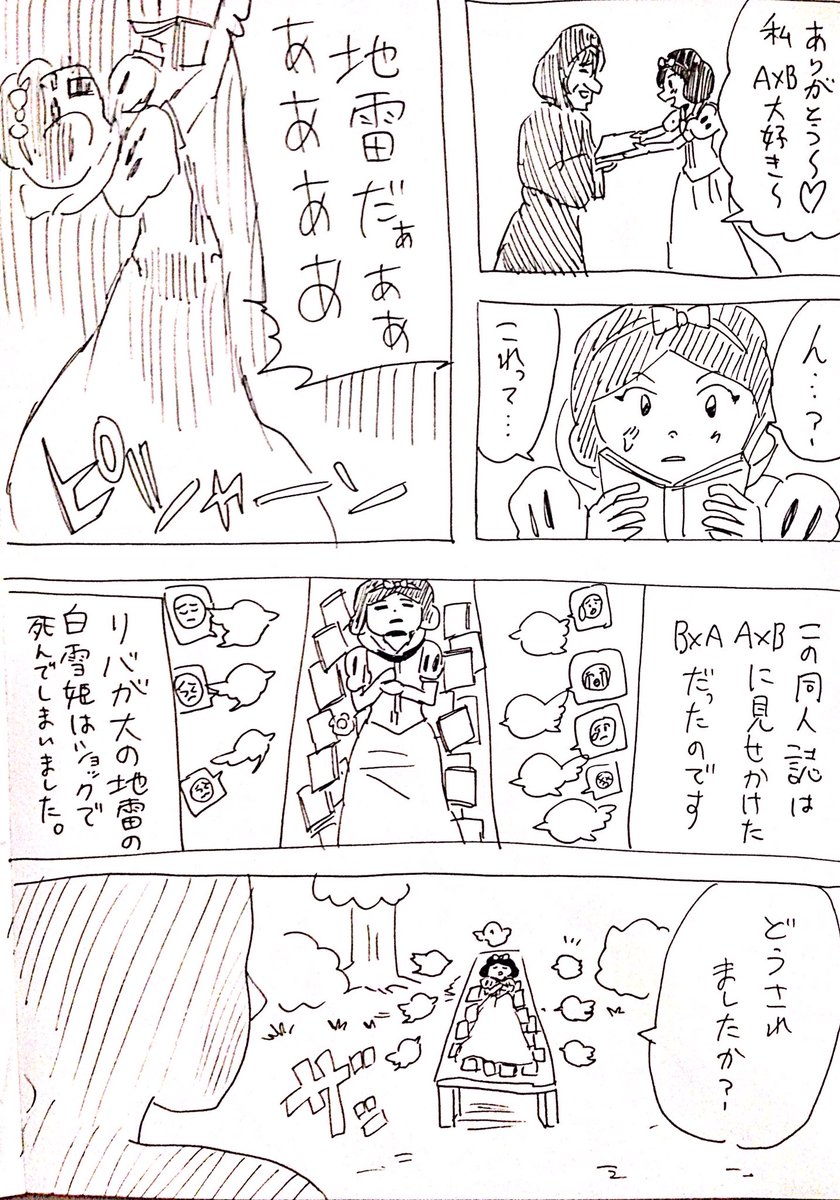 ありがとう〜♡
私
AxB
大好き〜
ん…?
これって…
地雷だぁぁぁ
ああああああ
ピシャーン
この同人誌は
AxB
に見せかけた
BxA
だったのです
リバが大の地雷の
白雪姫はショックで
死んでしまいました。
どうされ
ましたか?
ザッ